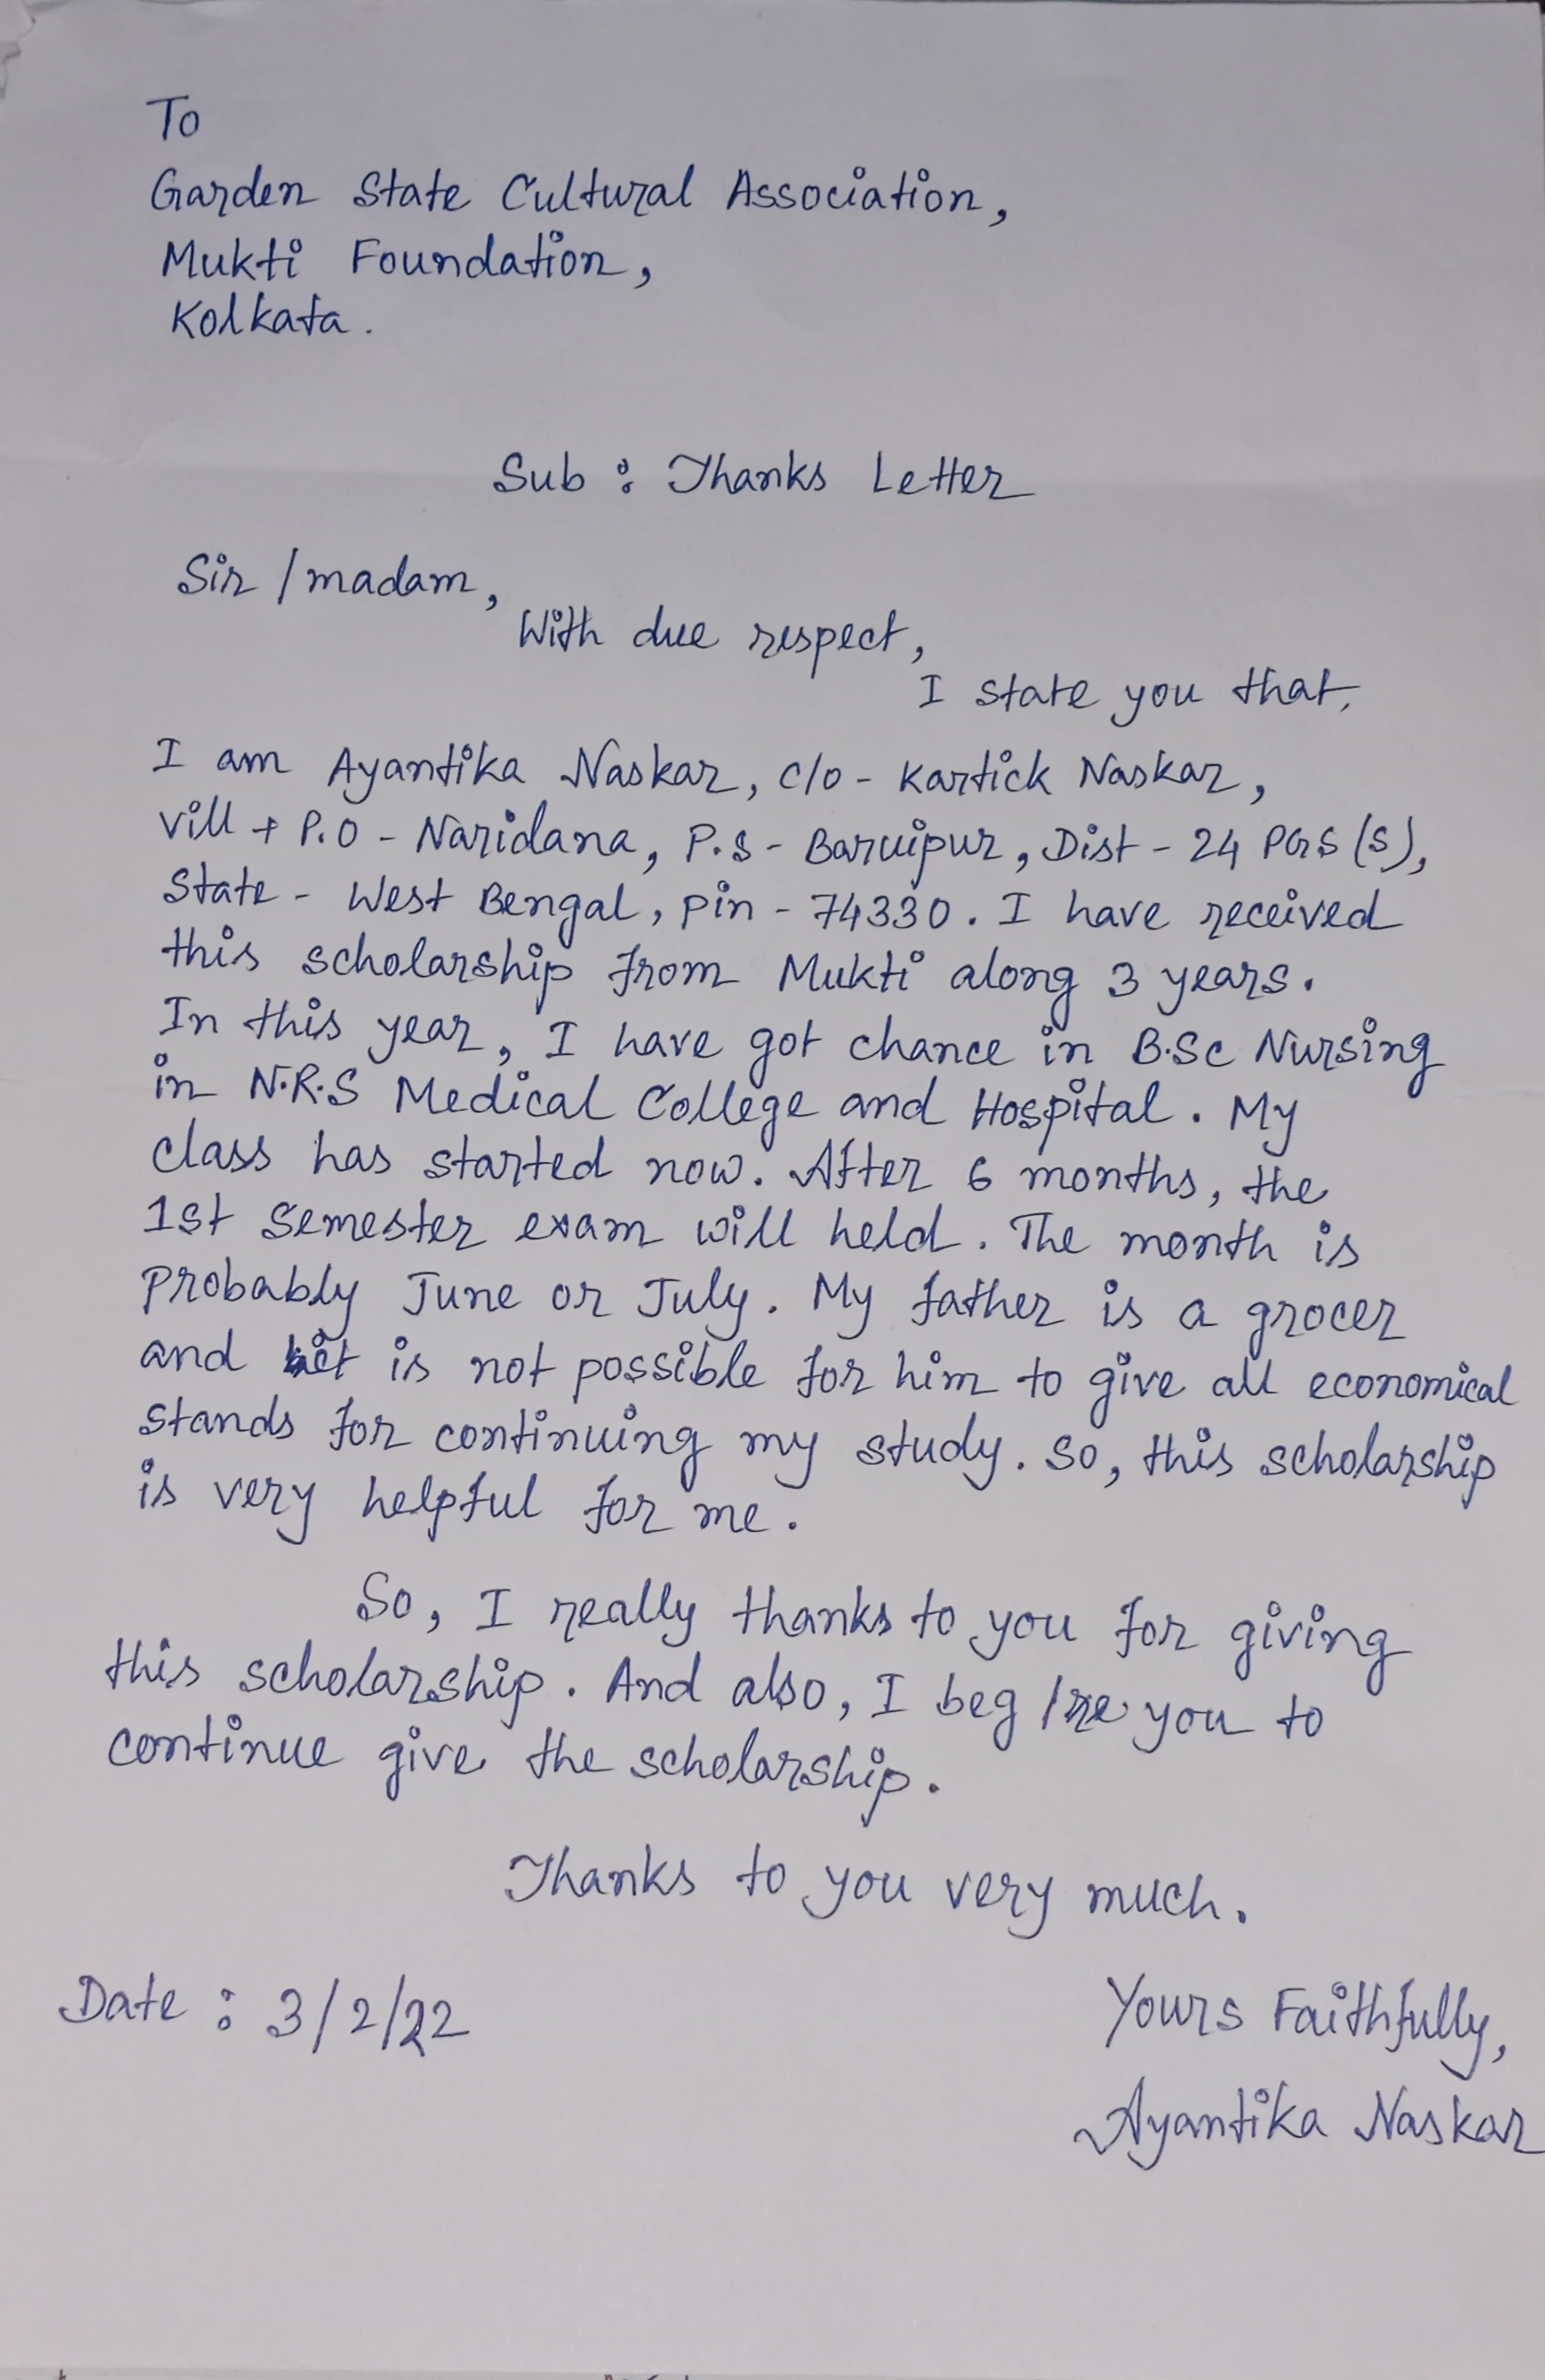 To
Garden State Cultural Association,
Mukti Foundation,
Kolkata.
Sub : Thanks Letter
Sir / madam,
With due respect,
I state you that,
I am Ayantika Naskar, c/o - Kartick Naskar,
Vill + P.O - Naridana, P.S - Baruipur, Dist - 24 PGS (S),
State - West Bengal, pin - 74330. I have received
this scholarship from Mukti along 3 years.
In this year, I have got chance in B.Sc Nursing
in N.R.S Medical College and Hospital. My
class has started now. After 6 months, the
1st semester exam will held. The month is
probably June or July. My father is a grocer
and it is not possible for him to give all economical
stands for continuing my study. So, this scholarship
is very helpful for me.
So, I really thanks to you for giving
this scholarship. And also, I beg you to
continue give the scholarship.
Thanks to you very much.
Date : 3/2/22
Yours Faithfully,
Ayantika Naskar